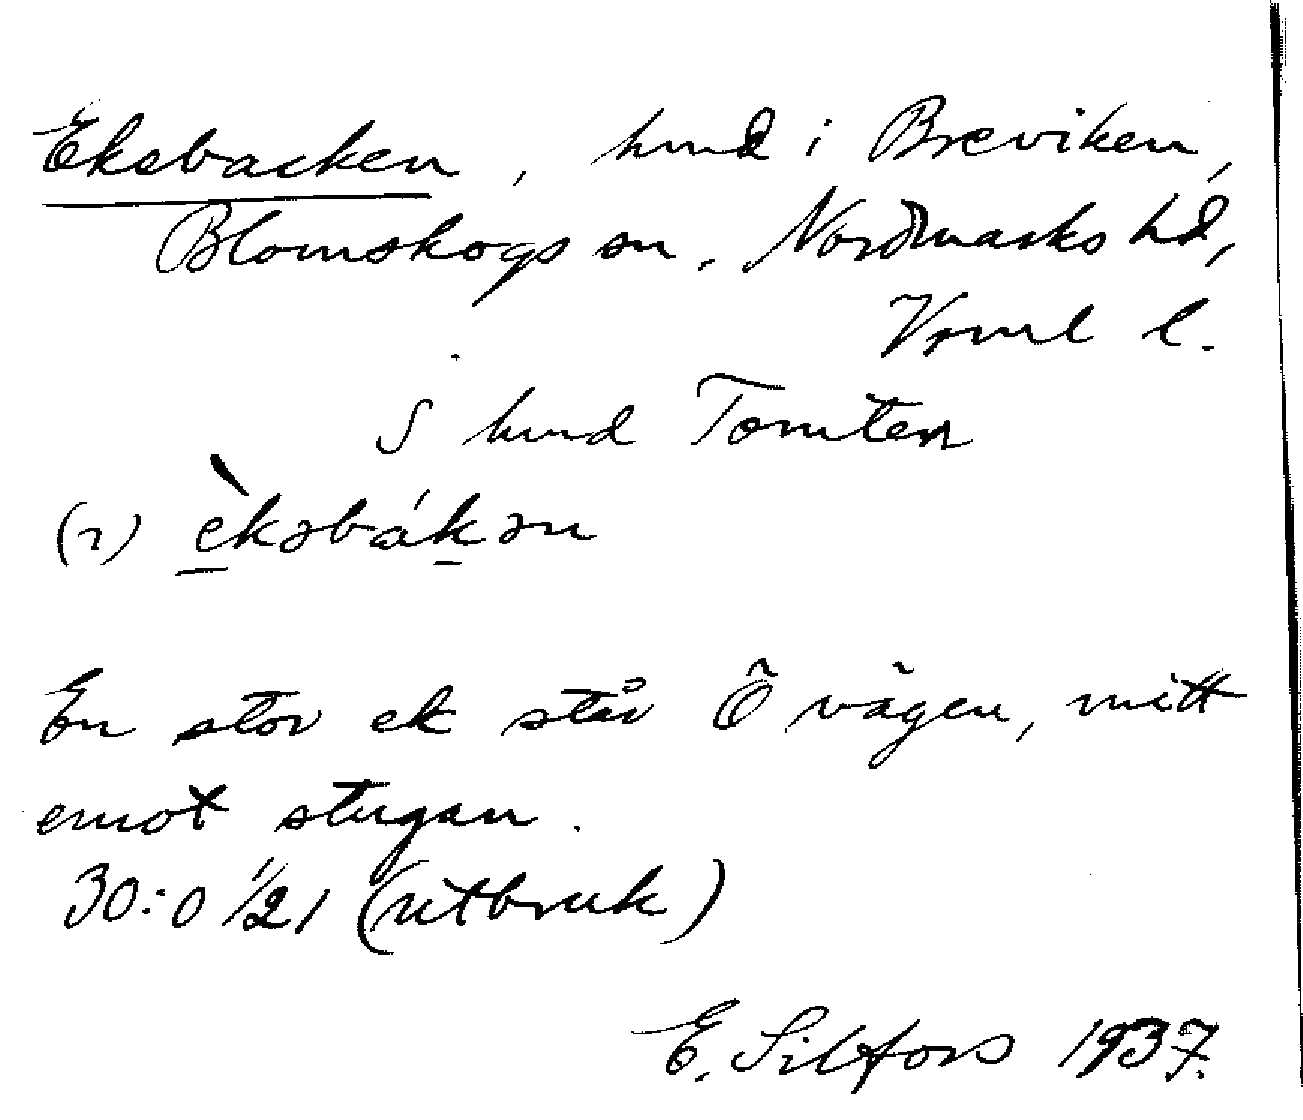 Eksbacken, hmd i Breviken,
Blomskogs sn, Nordmarks hd,
Vrml l.
S hmd Tomten
(2) èksbákən
En stor ek står Ö vägen, mitt
emot stugan.
30:0 1/21 (utbruk)
E. Silfors 1937.